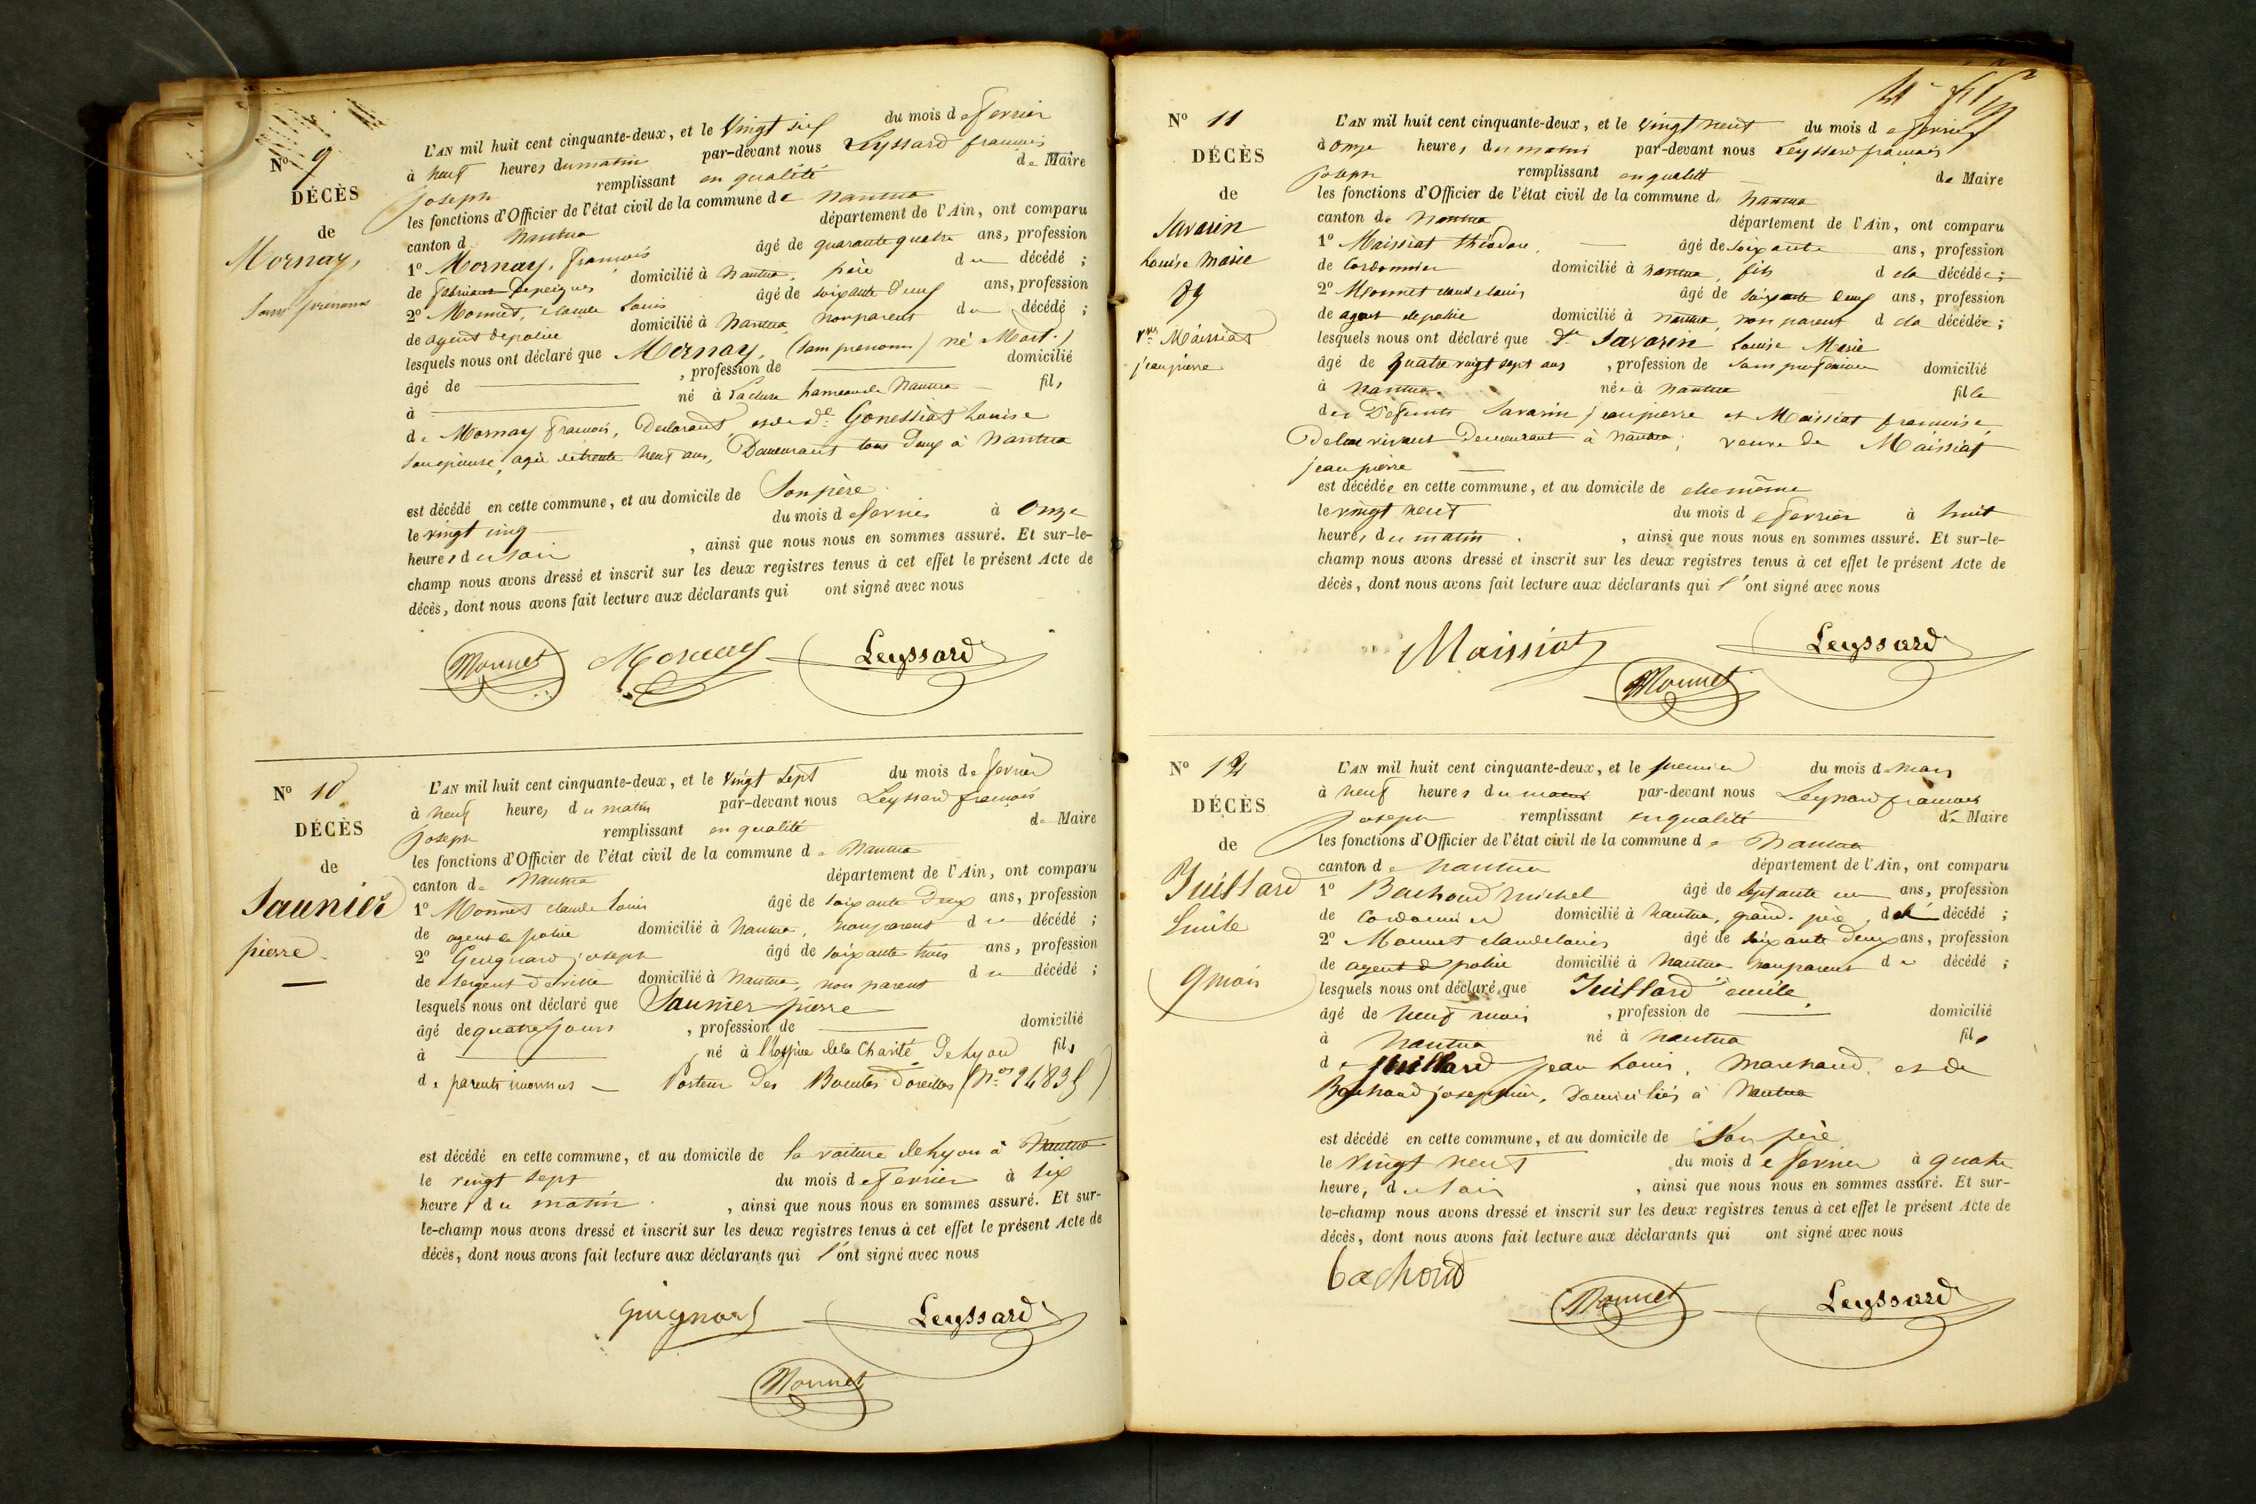 N° 9
DÉCÈS
de
Mornay,
Sans prénoms
L'AN mil huit cent cinquante-deux, et le vingt six du mois de fevrier
à neuf heures du matin par-devant nous Leyssard francois
joseph remplissant en qualité de Maire
les fonctions d'Officier de l'état civil de la commune de nantua
canton d nantua département de l'Ain, ont comparu
1° Mornay, francois âgé de quarante quatre ans, profession
de fabricant de peignes domicilié à nantua, père du décédé ;
2° Monnet, claude Louis âgé de soixante deux ans, profession
de agent de police domicilié à nantua, non parent du décédé ;
lesquels nous ont déclaré que Mornay, (sans prenoms) né Mort.
âgé de , profession de domicilié
à né à Lacluse hameau de Nantua fils
de Mornay francois, Declarant, et de de Gonessiat Louise
son épouse, agée de trente neuf ans, Demeurant tous deux à Nantua
est décédé en cette commune, et au domicile de Son père
le vingt cinq du mois de fevrier à onze
heures du soir , ainsi que nous nous en sommes assuré. Et sur-le-
champ nous avons dressé et inscrit sur les deux registres tenus à cet effet le présent Acte de
décès, dont nous avons fait lecture aux déclarants qui ont signé avec nous
Monnet Mornay Leyssard
N° 10
DÉCÈS
de
Saunier
pierre
L'AN mil huit cent cinquante-deux, et le vingt sept du mois de fevrier
à neuf heures du matin par-devant nous Leyssard francois
joseph remplissant en qualité de Maire
les fonctions d'Officier de l'état civil de la commune de Nantua
canton de Nantua département de l'Ain, ont comparu
1° Monnet claude Louis âgé de soixante deux ans, profession
de agent de police domicilié à nantua, non parent du décédé ;
2° Guignard joseph âgé de soixante trois ans, profession
de sergent de ville domicilié à nantua, non parent du décédé ;
lesquels nous ont déclaré que Saunier pierre
âgé de quatre jours , profession de domicilié
à né à l'hospice de la Charité de Lyon fils
de parents inconnus Porteur des Boucles d'oreilles (nos
est décédé en cette commune, et au domicile de la voiture de Lyon à Nantua
le vingt sept du mois de fevrier à six
heures du matin , ainsi que nous nous en sommes assuré. Et sur-
le-champ nous avons dressé et inscrit sur les deux registres tenus à cet effet le présent Acte de
décès, dont nous avons fait lecture aux déclarants qui l'ont signé avec nous
Guignard Leyssard
Monnet
N° 11
DÉCÈS
de
Savarin
Louise Marie
87
vve Maissiat
jean pierre
L'AN mil huit cent cinquante-deux, et le vingt neuf du mois de fevrier
à onze heures du matin par-devant nous Leyssard francois
joseph remplissant en qualité de Maire
les fonctions d'Officier de l'état civil de la commune de nantua
canton de nantua département de l'Ain, ont comparu
1° Maissiat théodore âgé de soixante ans, profession
de Cordonnier domicilié à nantua, fils de la décédée ;
2° Monnet claude Louis âgé de soixante deux ans, profession
de agent de police domicilié à nantua, non parent de la décédée ;
lesquels nous ont déclaré que de Savarin Louise Marie
âgé de quatre vingt sept ans , profession de sans profession domicilié
à nantua née à nantua fille
des Defunts Savarin jean pierre et Maissiat francoise,
De leur vivant Demeurant à nantua; veuve de Maissiat
jean pierre
est décédée en cette commune, et au domicile de elle même
le vingt neuf du mois de fevrier à huit
heures du matin , ainsi que nous nous en sommes assuré. Et sur-le-
champ nous avons dressé et inscrit sur les deux registres tenus à cet effet le présent Acte de
décès, dont nous avons fait lecture aux déclarants qui l'ont signé avec nous
Maissiat Leyssard
Monnet
N° 12
DÉCÈS
de
Juillard
Emile
9 mois
L'AN mil huit cent cinquante-deux, et le premier du mois de mars
à neuf heures du matin par-devant nous Leyssard francois
joseph remplissant en qualité de Maire
les fonctions d'Officier de l'état civil de la commune de Nantua
canton de nantua département de l'Ain, ont comparu
1° Bachoud michel âgé de septante un ans, profession
de Cordonnier domicilié à nantua, grand-père, du décédé ;
2° Monnet claude Louis âgé de soixante deux ans, profession
de agent de police domicilié à nantua non parent du décédé ;
lesquels nous ont déclaré que Juillard emile,
âgé de neuf mois , profession de domicilié
à nantua né à nantua fils
de Juillard jean Louis, marchand, et de
Bachoud josephine, Domiciliés à Nantua
est décédé en cette commune, et au domicile de Son père
le vingt neuf du mois de fevrier à quatre
heures du soir , ainsi que nous nous en sommes assuré. Et sur-
le-champ nous avons dressé et inscrit sur les deux registres tenus à cet effet le présent Acte de
décès, dont nous avons fait lecture aux déclarants qui ont signé avec nous
bachoud
Monnet Leyssard